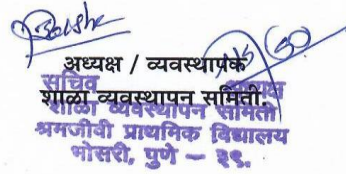 अध्यक्ष / व्यवस्थापक
सचिव अध्यक्ष
शाळा व्यवस्थापन समिती.
शाळा व्यवस्थापन समिती
श्रमजीवी प्राथमिक विद्यालय
भोसरी, पुणे – ३९.